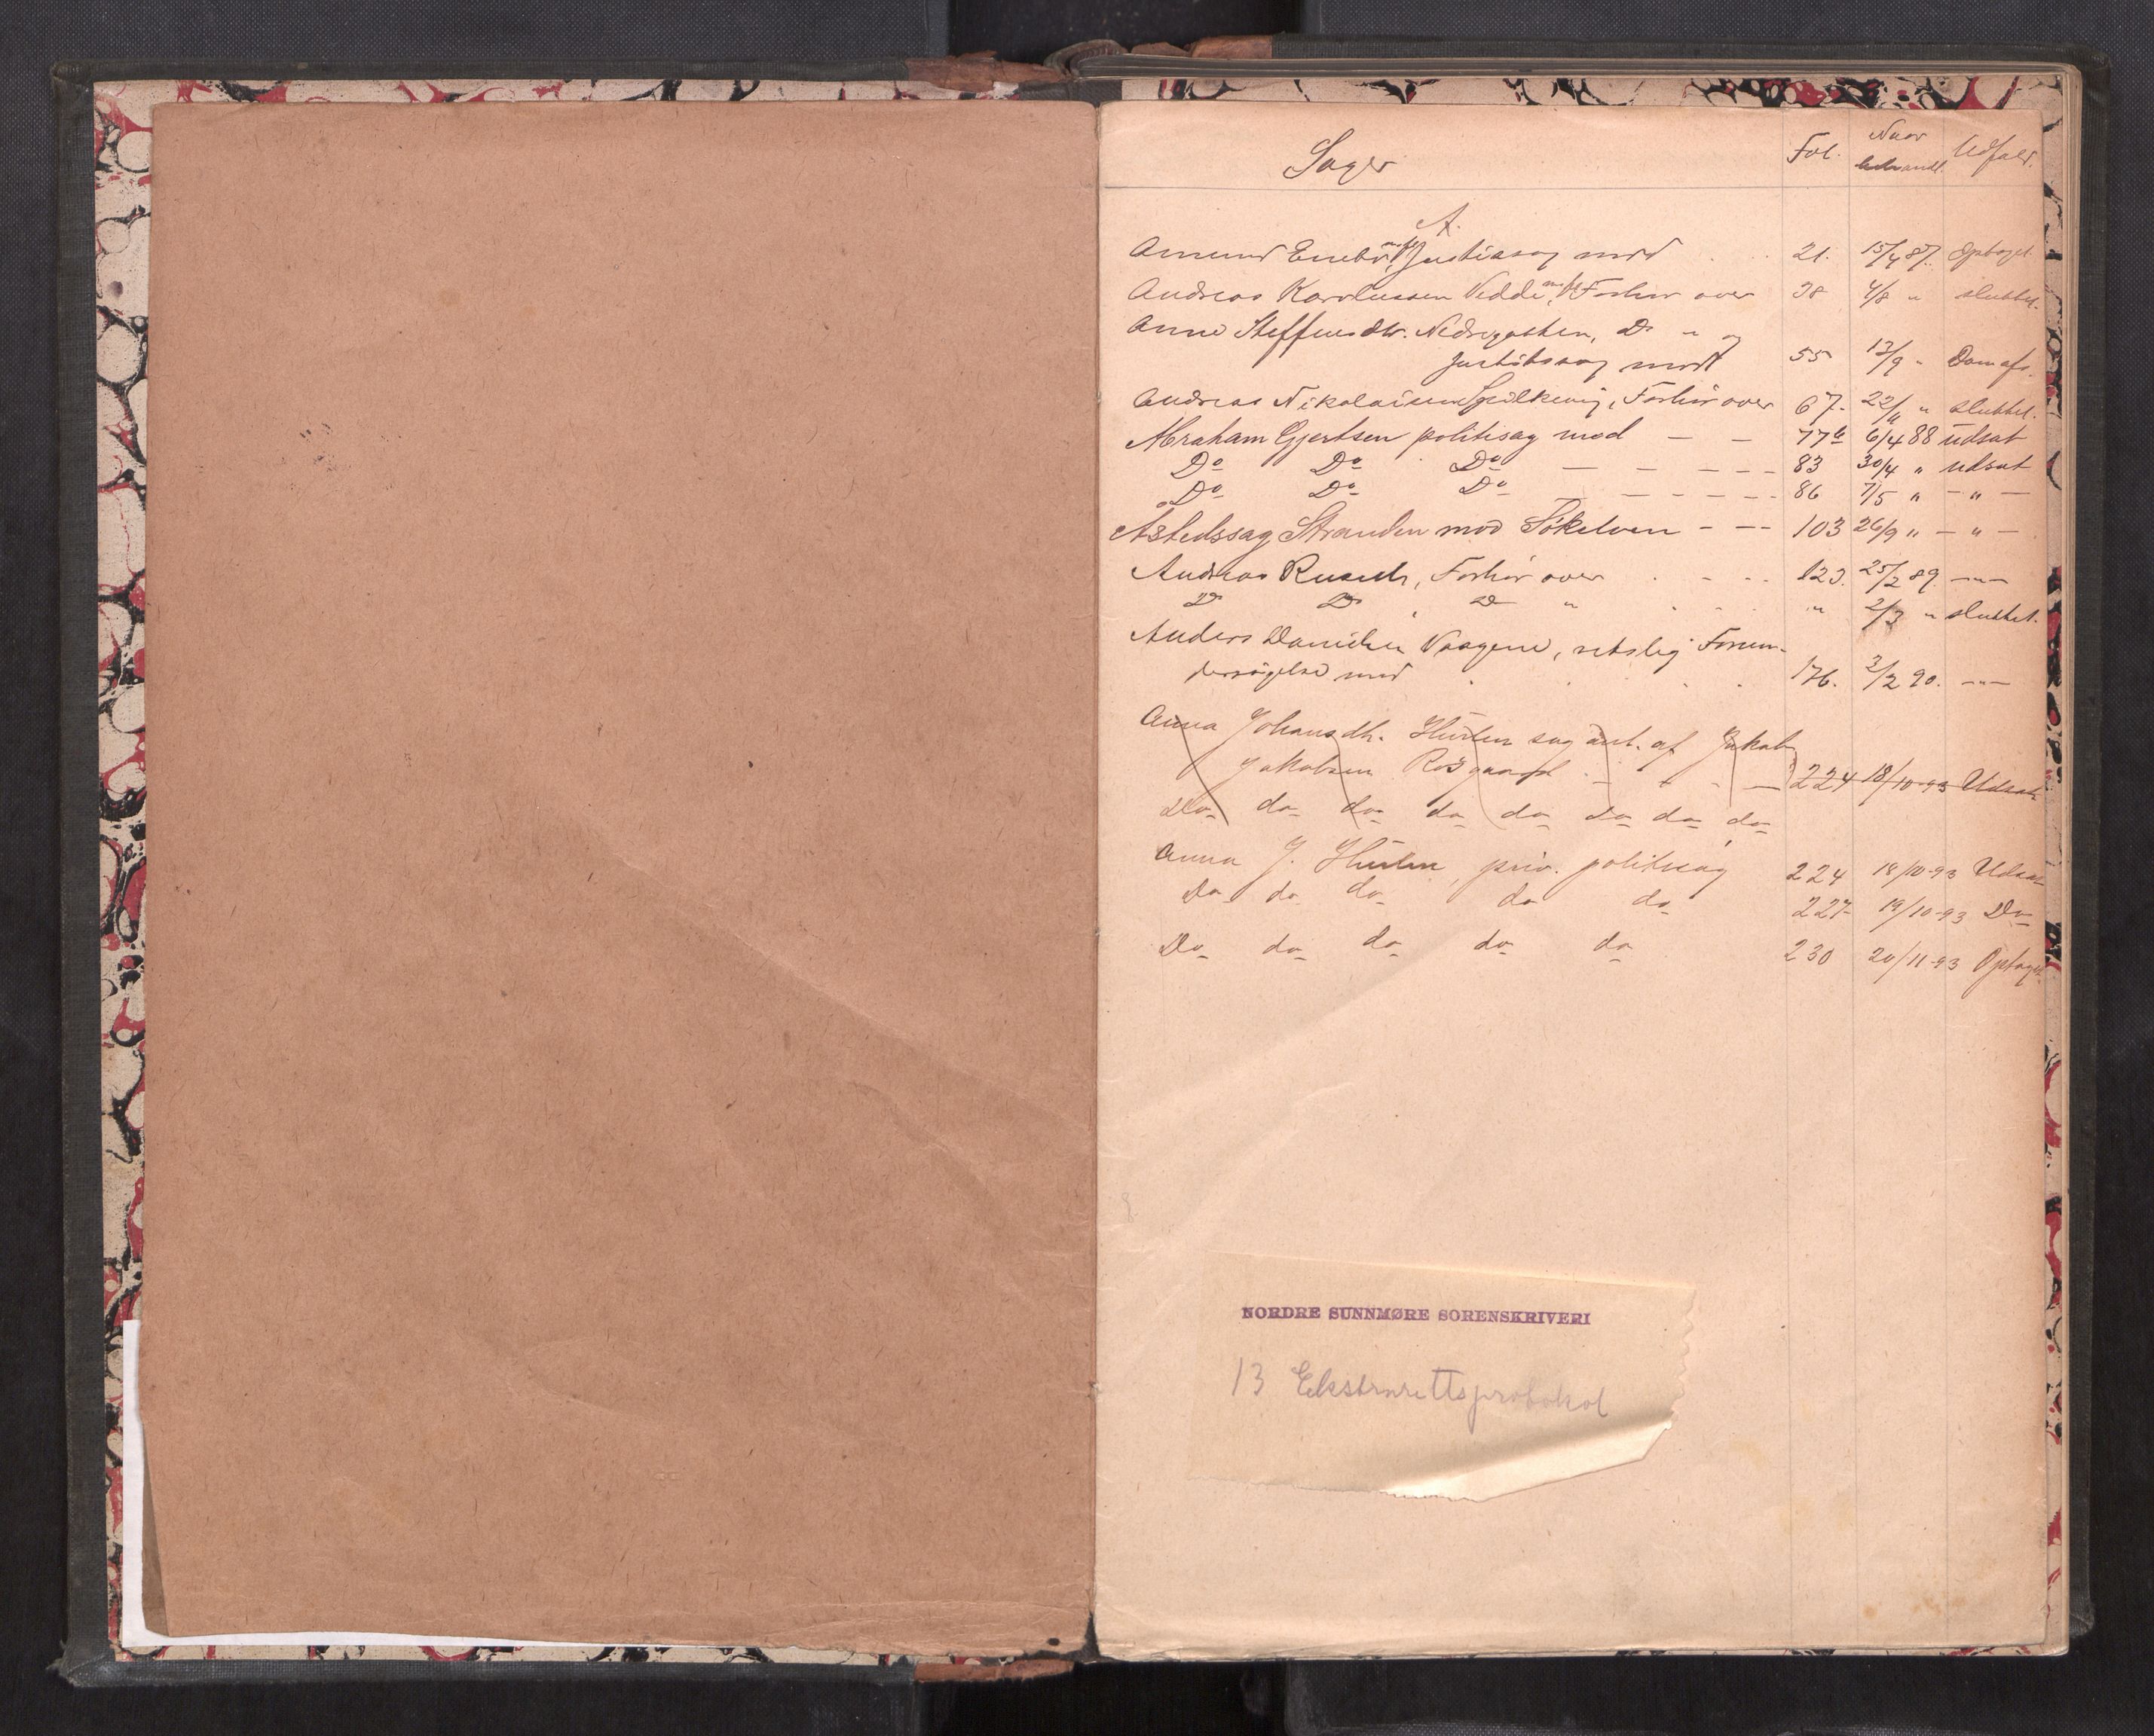 Sager Fol. Naar behandl. Udfald.
A.
Amund Enebo m. fl. Justissag mod 21. 15/4 87. Optaget.
Andreas Karolussen Vedde m. fl. Forhør over 38 4/8 " sluttet.
Anne Steffensdtr. Nedregotten, Do " og
Justitssag mod 55 13/9 " Dom afs.
Andreas Nikolaisen Spilkevig, Forhør over 67. 22/11 " sluttet.
Abraham Gjertsen politisag mod — — 77b 6/4 88 udsat
Do Do Do — — — — — 83 30/4 " udsat
Do Do Do — — — — — 86 7/5 " — " —
Åstedssag Stranden mod Søkelven — — — 103 26/9 " — " —
Andreas Rusch, Forhør over 123. 25/2 89. — " —
Do Do Do " " 2/3 " sluttet.
Anders Danielsen Vaagene, retslig Forun-
dersøgelse mod 176. 3/2 90. — " —
Anna Johansdtr. Hurlen sag anl. af Jakob
Jakobsen 224 18/10-93 Udsat
Do do do do do do do do
Anna J. Hurlen, priv. politisag 224 18/10-93 Udsat
Do do do do do 227 19/10-93 Do
Do do do do do 230 20/11-93 Optaget
NORDRE SUNNMØRE SORENSKRIVERI
13 Ekstrarettsprotokol